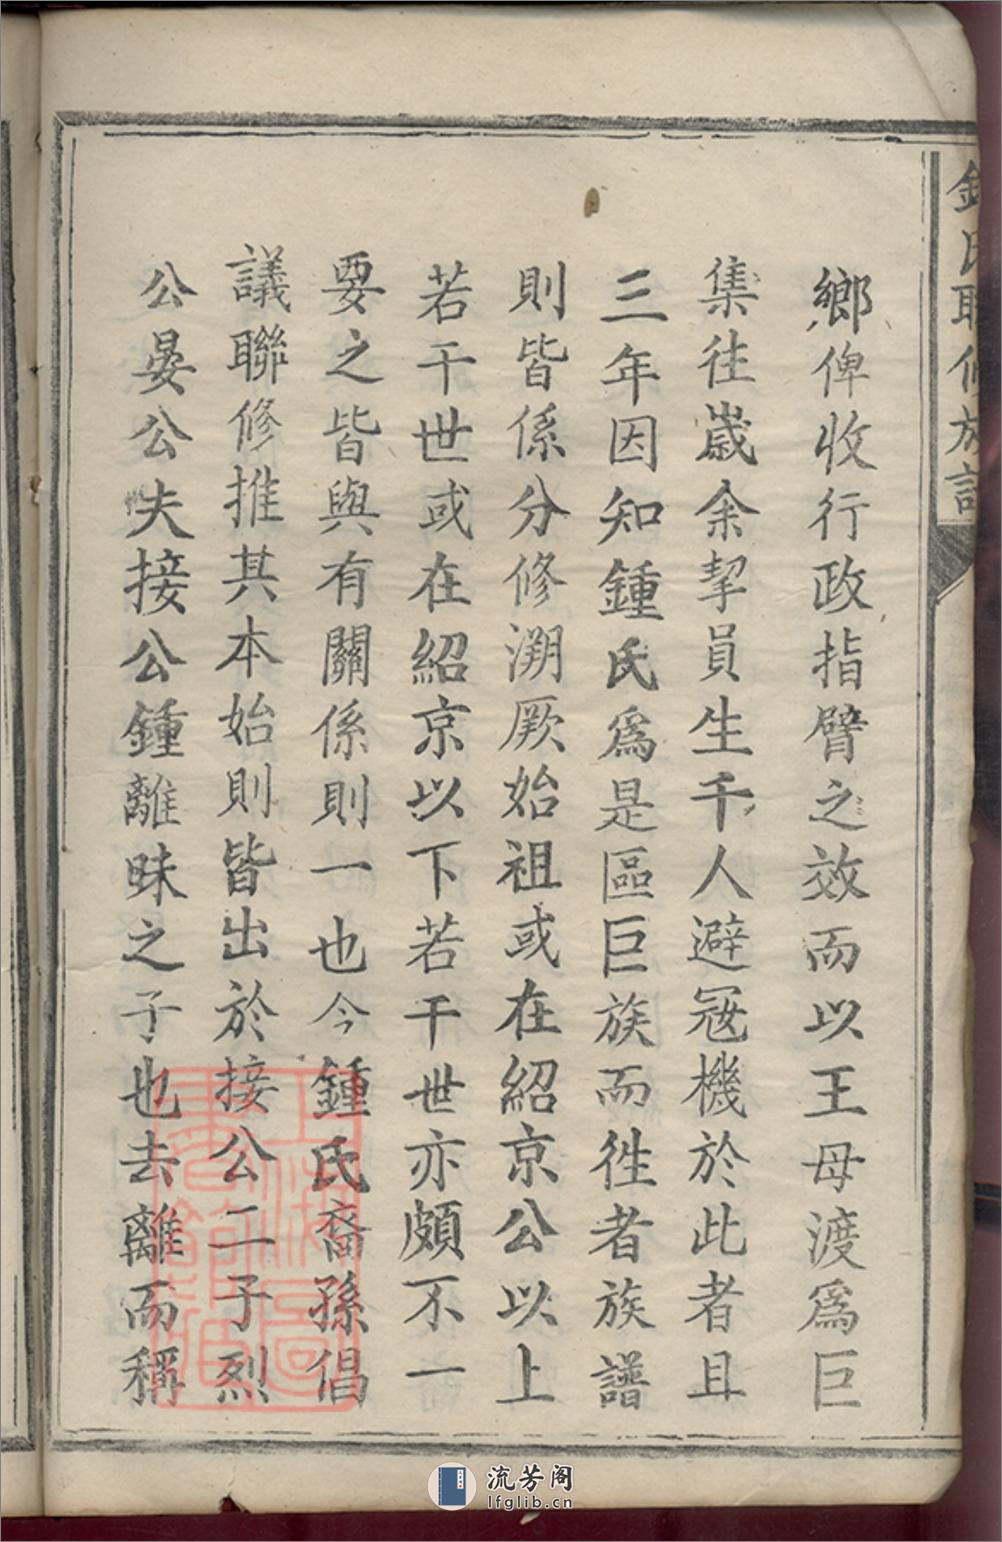 鍾氏聯修族譜
鄉俾收行政指臂之效而以王母渡爲巨
集往嵗余挈員生千人避寇機於此者且
三年因知鍾氏爲是區巨族而徃者族譜
則皆係分修溯厥始祖或在紹京公以上
若干世或在紹京以下若干世亦頗不一
要之皆與有關係則一也今鍾氏裔孫倡
議聯修推其本始則皆出於接公二子烈
公晏公夫接公鍾離昧之子也去離而稱
上海圖書館藏
流芳阁
lfglib.cn